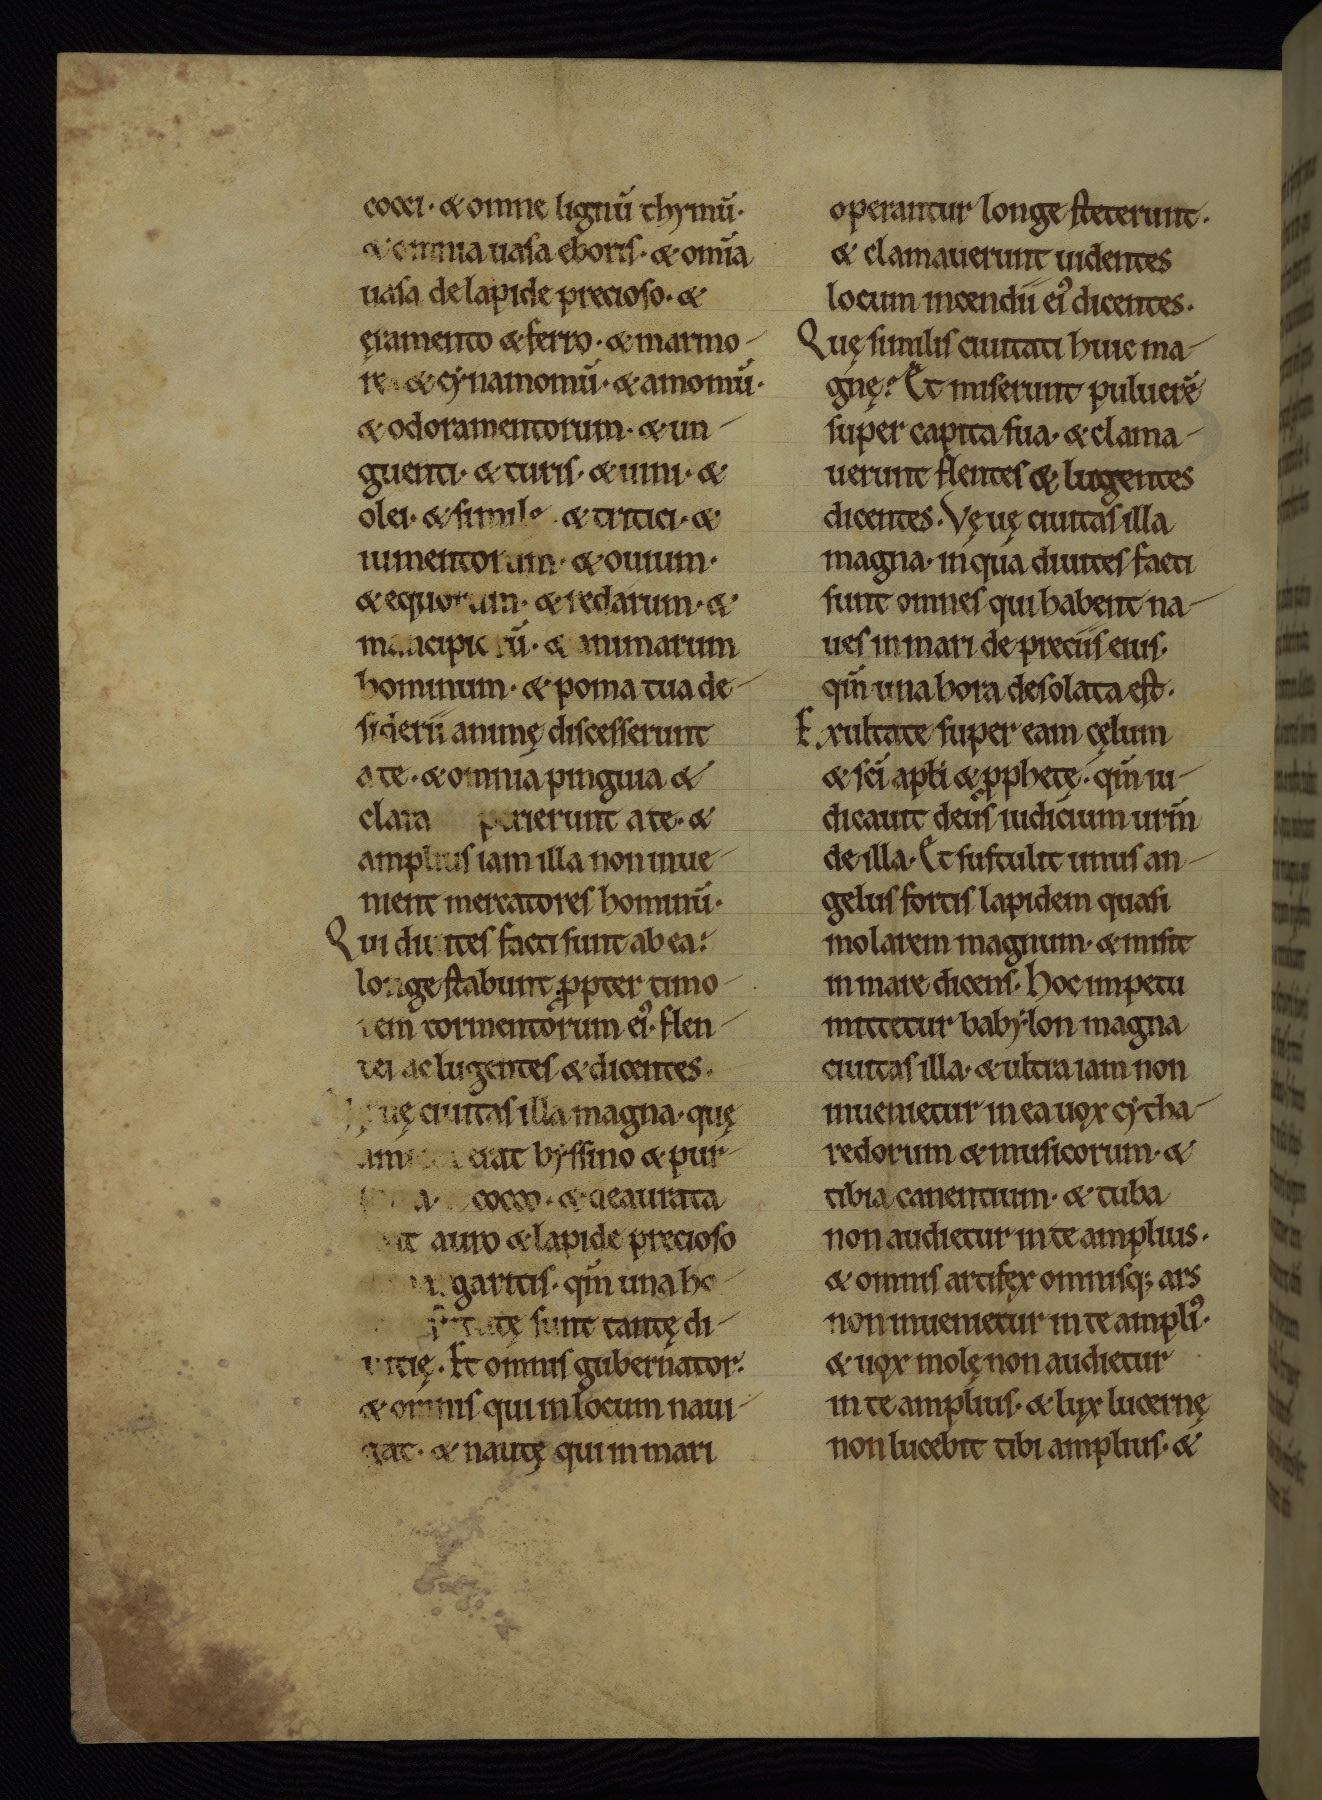 cocci· & omne lignū thymū·
& omnia uasa eboris· & om̄ia
uasa de lapide precioso· &
ęramento & ferro· & marmo-
re· & cẏnamomū· & amomū·
& odoramentorum· & un-
guenti· & turis· & uini· &
olei· & simile· & tritici· &
iumentorum· & ouium·
& equorum· & redarum· &
mancipiorū· & animarum
hominum· & poma tua de-
siderii animę discesserunt
a te· & omnia pinguia &
clara perierunt a te· &
amplius iam illa non inue-
nient mercatores hominū·
Qui diuites facti sunt ab ea:
longe stabunt ꝓpter timo-
rem tormentorum ei᾿· flen-
tes ac lugentes & dicentes·
uę ciuitas illa magna· quę
erat byssino & pur-
cocco· & deaurata
auro & lapide precioso
garitis· qm̄ una ho-
sunt tantę di-
uitię· Et omnis gubernator:
& omnis qui in locum naui-
gat· & nautę qui in mari
operantur longe steterunt·
& clamauerunt uidentes
locum incendii ei᾿ dicentes·
Quę similis ciuitati huic ma-
gnę? Et miserunt puluerē
super capita sua· & clama-
uerunt flentes & lugentes
dicentes· Vę uę ciuitas illa
magna· in qua diuites facti
sunt omnes qui habent na-
ues in mari de preciis eius·
qm̄ una hora desolata est·
Exultate super eam cęlum
& sc̄i apl̄i & ꝓphetę· qm̄ iu-
dicauit deus iudicium ur̄m
de illa· Et sustulit unus an-
gelus fortis lapidem quasi
molarem magnum· & misit
in mare dicens· Hoc impetu
mittetur babẏlon magna
ciuitas illa· & ultra iam non
inuenietur in ea uox cẏtha-
redorum & musicorum· &
tibia canentium· & tuba
non audietur in te amplius·
& omnis artifex omnisq; ars
non inuenietur in te ampli᾿·
& uox molę non audietur
in te amplius· & lux lucernę
non lucebit tibi amplius· &